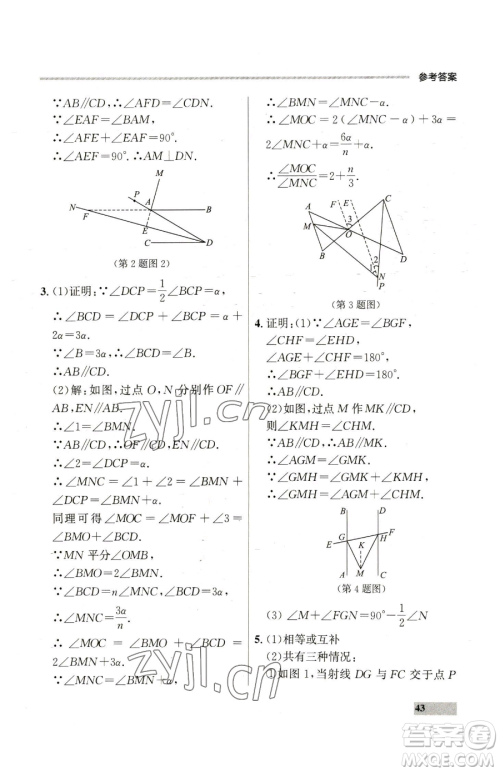 参考答案
∵AB∥CD,∴∠AFD=∠CDN.
∵∠EAF=∠BAM,
∴∠AFE+∠EAF=90°.
∴∠AEF=90°.∴AM⊥DN.
M
P
N
F
A
B
E
C
D
(第2题图2)
3. (1)证明:∵∠DCP=1/2∠BCP=α,
∴∠BCD=∠DCP+∠BCP=α+
2α=3α.
∵∠B=3α,∴∠BCD=∠B.
∴AB∥CD.
(2)解:如图,过点O,N分别作OF∥
AB,EN∥AB.
∴∠1=∠BMN.
∵AB∥CD,∴OF∥CD,EN∥CD.
∴∠2=∠DCP=α.
∴∠MNC=∠1+∠2=∠BMN+
∠DCP=∠BMN+α.
同理可得∠MOC=∠MOF+∠3=
∠BMO+∠BCD.
∵MN平分∠OMB,
∴∠BMO=2∠BMN.
∵∠BCD=∠B=3α,
∴∠MNC=3α/n.
∴∠MOC=∠BMO+∠BCD=
2∠BMN+3α.
∴∠BMN=∠MNC-α.
∴∠MOC=2(∠MNC-α)+3α=
2∠MNC+α=6α/n+α.
∴∠MOC/∠MNC=2+n/3.
F
E
C
A
3
M
O
B
D
1
2
N
P
(第3题图)
4. 证明:(1)∵∠AGE=∠BGF,
∠CHF=∠EHD,
∠AGE+∠CHF=180°,
∴∠BGF+∠EHD=180°.
∴AB∥CD.
(2)如图,过点M作MK∥CD,
则∠KMH=∠CHM.
∵AB∥CD,∴AB∥MK.
∴∠AGM=∠GMK.
∴∠GMH=∠GMK+∠KMH.
∴∠GMH=∠AGM+∠CHM.
B
D
G
K
H
F
E
A
M
C
(第4题图)
(3) ∠M+∠FGN=90°-1/2∠N
5. (1)相等或互补
(2)共有三种情况:
①如图1,当射线DG与FC交于点P
43
zyjl.cn
zyjl.cn
作业精灵